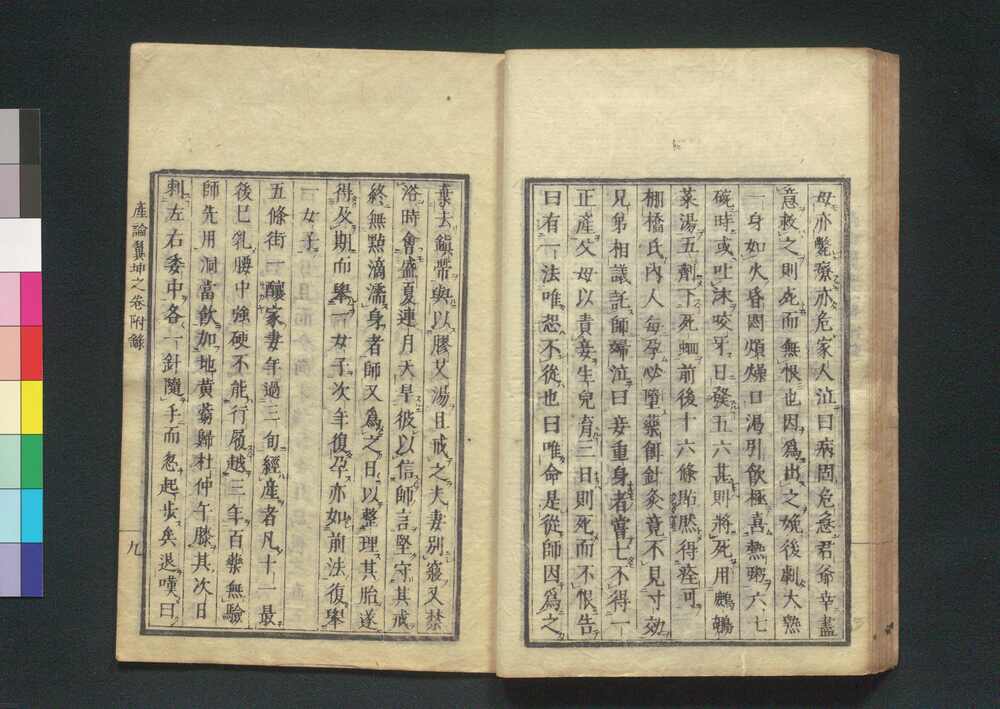 母亦斃療亦危家人泣曰病固危急君爺幸盡
意救之則死而無恨也因爲出之娩後劇大熱
一身如火昏悶煩燥口湯引飲極喜熱粥六七
碗時或吐沫咬牙日發五六甚則將死用鷓鴣
菜湯五劑下死蚘前後十六條貽然得痊可
棚橋氏內人每孕必墮藥餌針灸竟不見寸効
兄弟相議託師婦泣曰妾重身者嘗七不得一
正產父母以責妾生兒育三日則死而不恨告
曰有一法唯恐不從也曰唯命是從師因爲之
棄去鎭帶與以膠艾湯且戒之夫妻別寢又禁
浴時會盛夏連月大旱彼以信師言堅守其戒
終無點滴濡身者師又爲之日以整理其胎遂
得及期而擧一女子次年復孕亦如前法復擧
一女子
五條街一釀家妻年過三旬經產者凡十一最
後已乳腰中強硬不能行履越三年百藥無驗
師先用洞當飲加地黃芎歸杜仲午膝其次日
刺左右委中各一針隨手而忽起步矣退嘆曰
產論翼坤之卷附錄
九